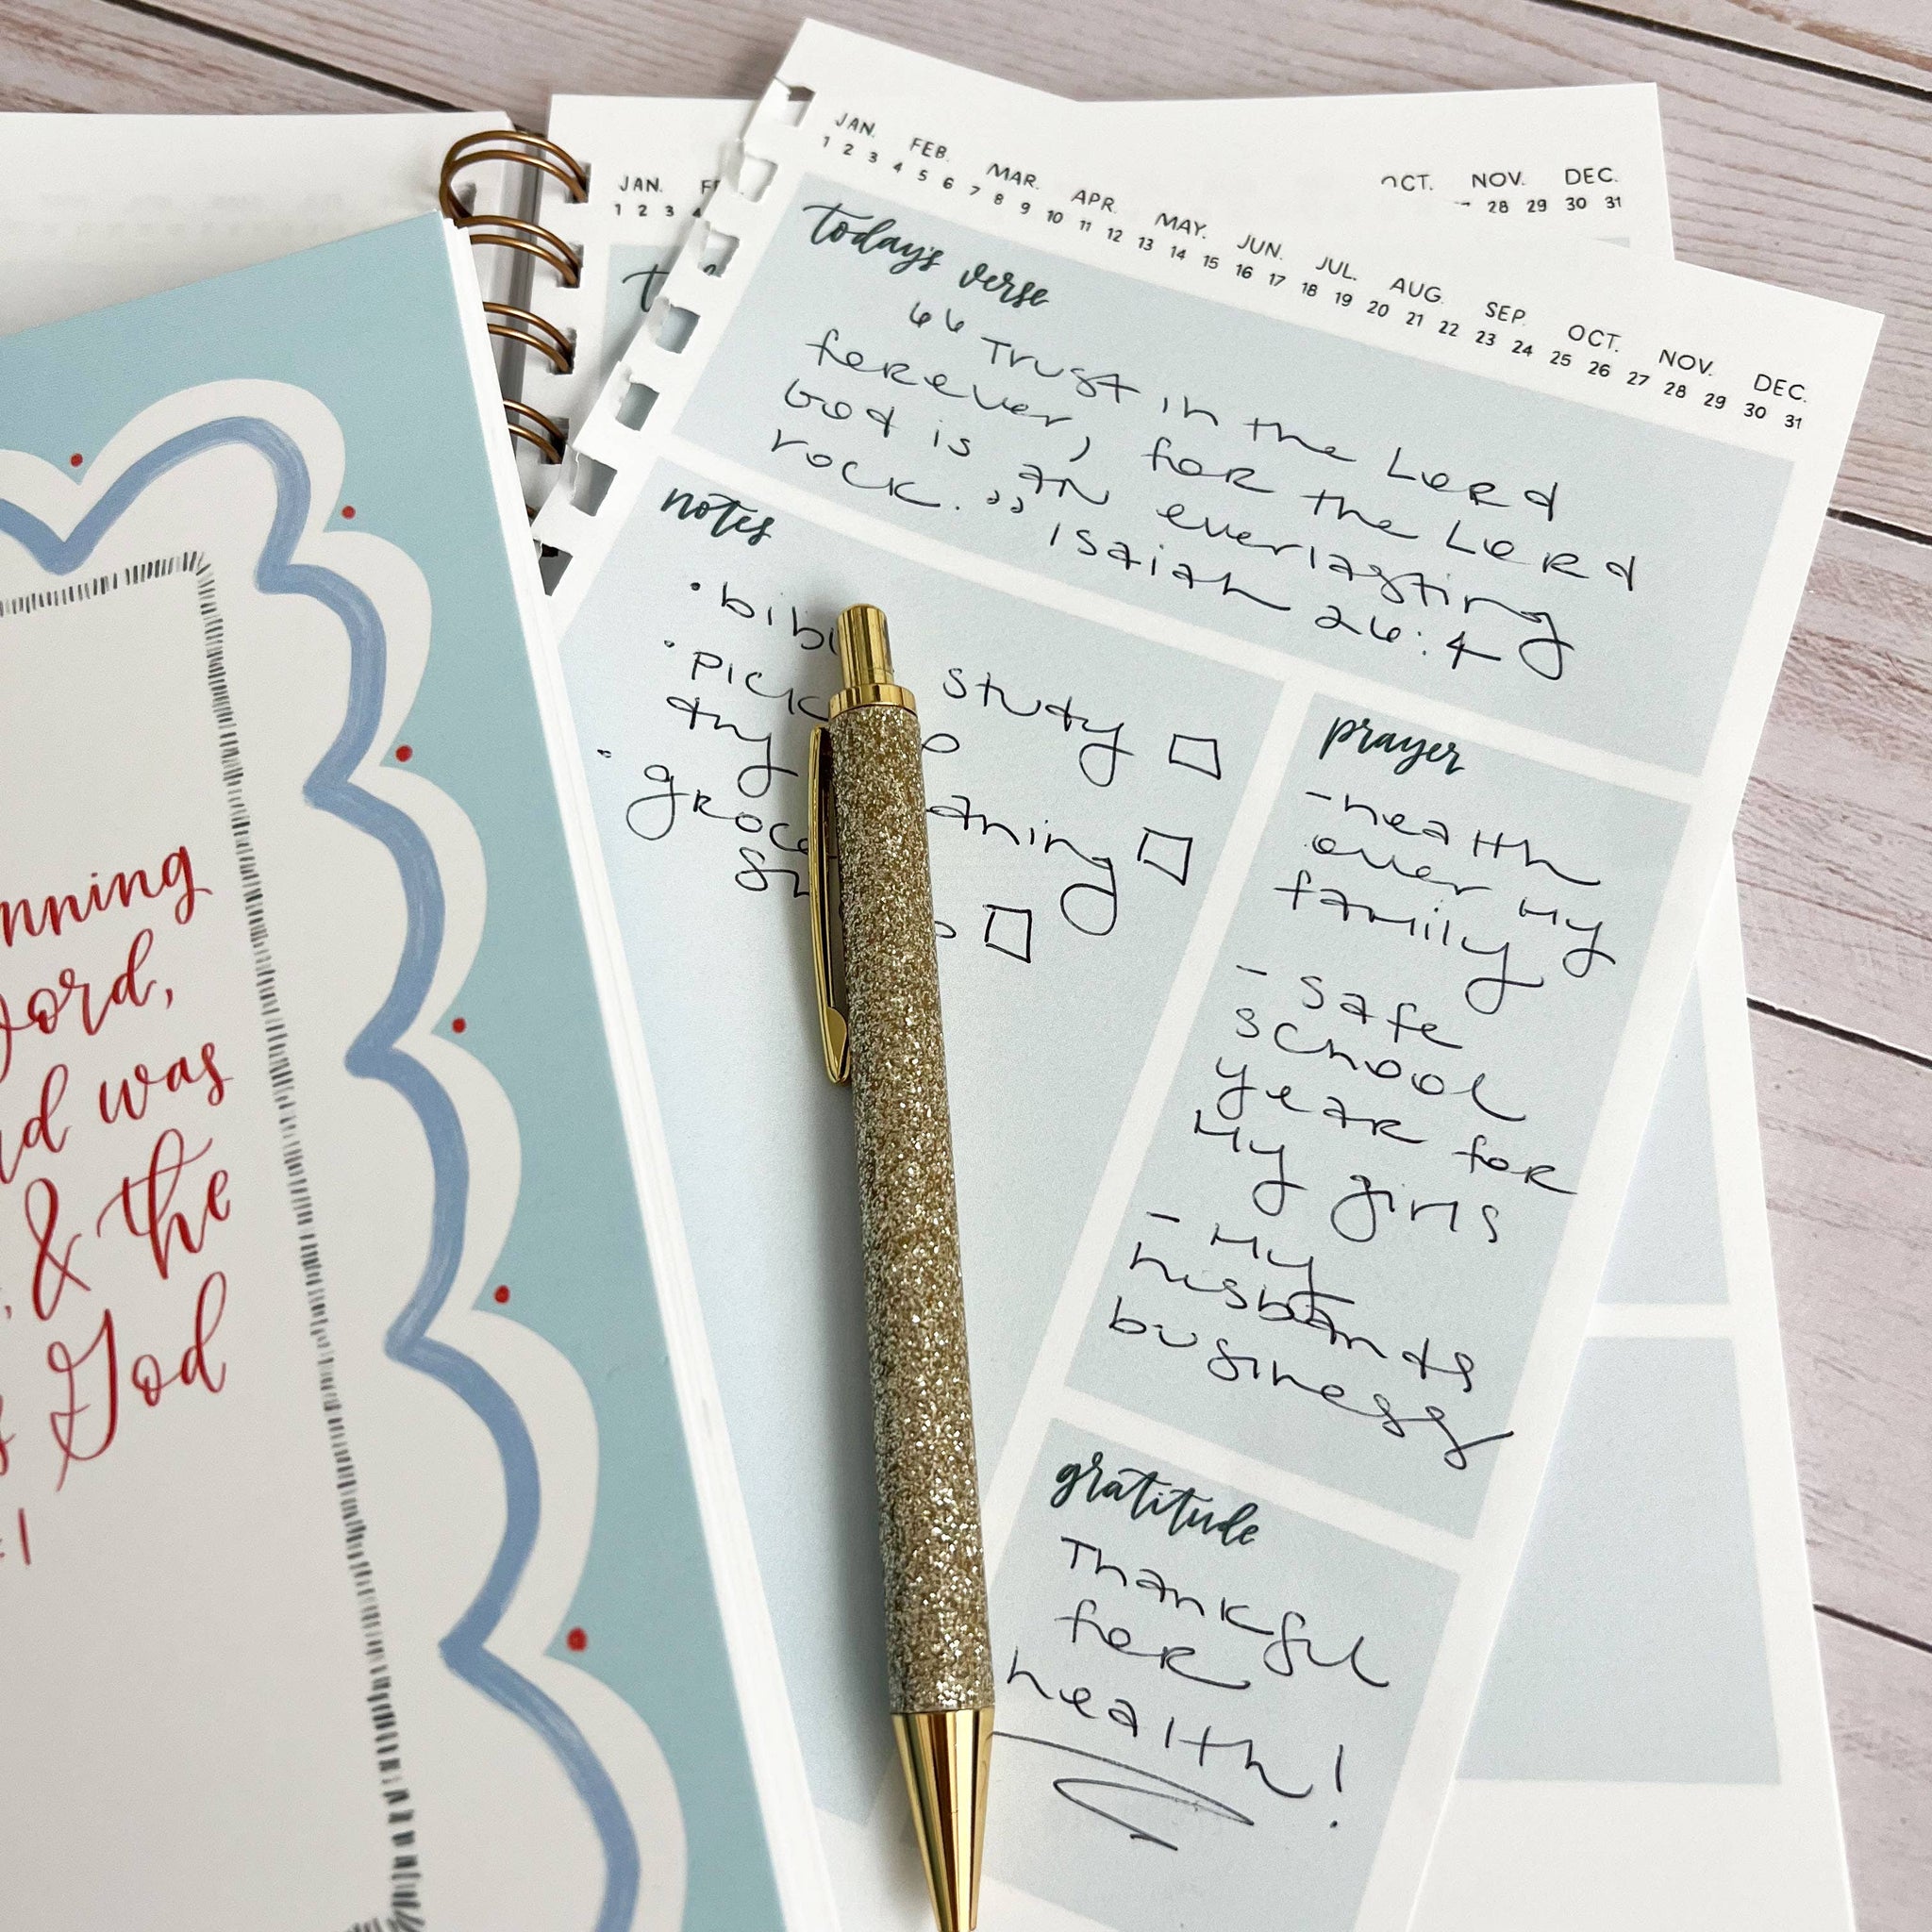 JAN. FEB. MAR. APR. MAY. JUN. JUL. AUG. SEP. OCT. NOV. DEC.
1 2 3 4 5 6 7 8 9 10 11 12 13 14 15 16 17 18 19 20 21 22 23 24 25 26 27 28 29 30 31
today's verse
"Trust in the Lord
forever, for the Lord
God is an everlasting
rock." Isaiah 26:4
notes
• study
• pick
dry aning
•
prayer
- health
over my
family
- safe
school
year for
my girls
- my
husbands
business
gratitude
Thankful
for
health!
JAN.
1 2 3 4
NOV. DEC.
28 29 30 31
nning
ord,
d was
, & the
s God
:1